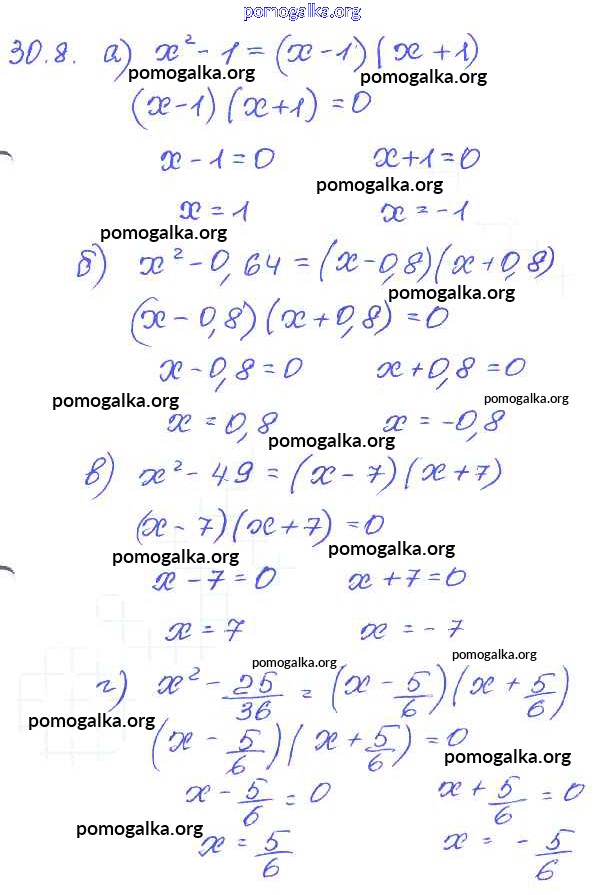 pomogalka.org
30.8. а) x² - 1 = (x - 1)(x + 1)
pomogalka.org pomogalka.org
(x - 1)(x + 1) = 0
x - 1 = 0 x + 1 = 0
pomogalka.org
x = 1 x = -1
pomogalka.org
б) x² - 0,64 = (x - 0,8)(x + 0,8)
pomogalka.org
(x - 0,8)(x + 0,8) = 0
x - 0,8 = 0 x + 0,8 = 0
pomogalka.org pomogalka.org
x = 0,8 x = -0,8
pomogalka.org
в) x² - 49 = (x - 7)(x + 7)
(x - 7)(x + 7) = 0
pomogalka.org pomogalka.org
x - 7 = 0 x + 7 = 0
x = 7 x = -7
pomogalka.org pomogalka.org
г) x² - 25/36 = (x - 5/6)(x + 5/6)
pomogalka.org
(x - 5/6)(x + 5/6) = 0
pomogalka.org
x - 5/6 = 0 x + 5/6 = 0
pomogalka.org pomogalka.org
x = 5/6 x = - 5/6